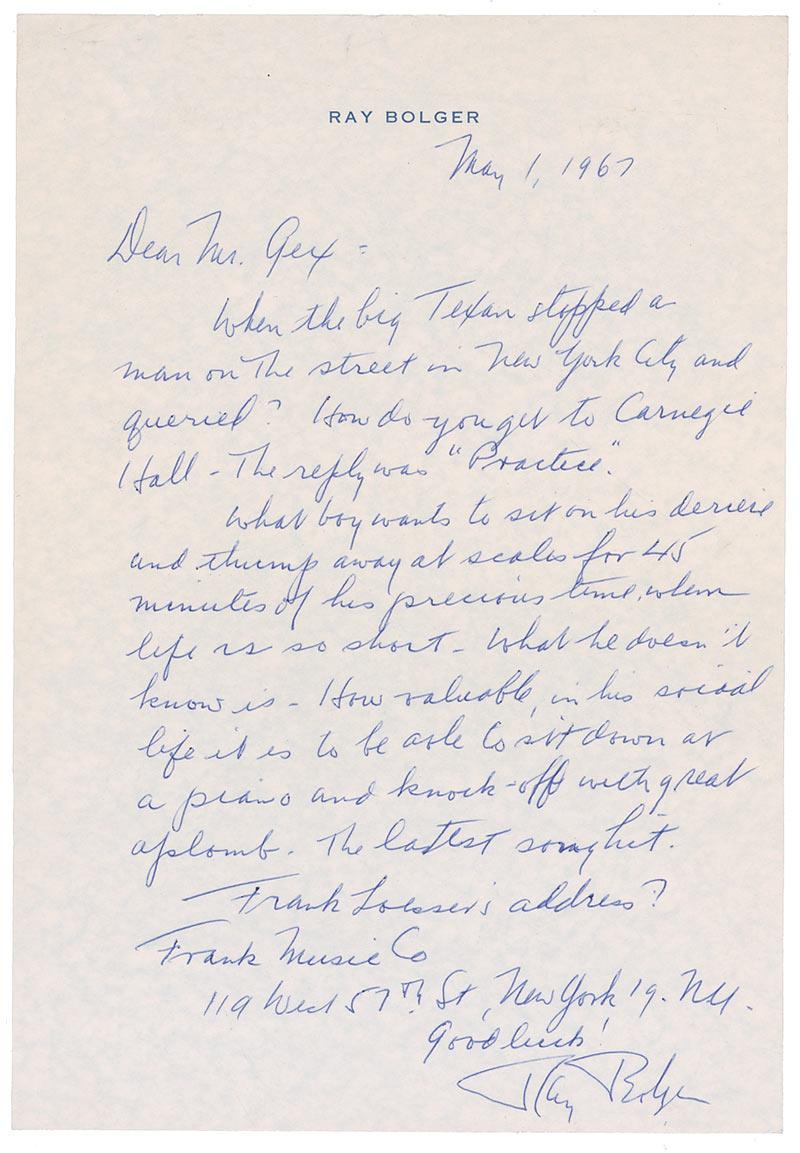 RAY BOLGER
May 1, 1967
Dear Mr. Gex -
When the big Texan stopped a
man on the street in New York City and
queried? How do you get to Carnegie
Hall - The reply was "Practice".
What boy wants to sit on his derriere
and thump away at scales for 45
minutes of his precious time, when
life is so short - What he doesn't
know is - How valuable, in his social
life it is to be able to sit down at
a piano and knock-off with great
aplomb. The latest song hit.
Frank Loesser's address?
Frank Music Co
119 West 57th St, New York, 19. N.Y.
Good luck!
Ray Bolger